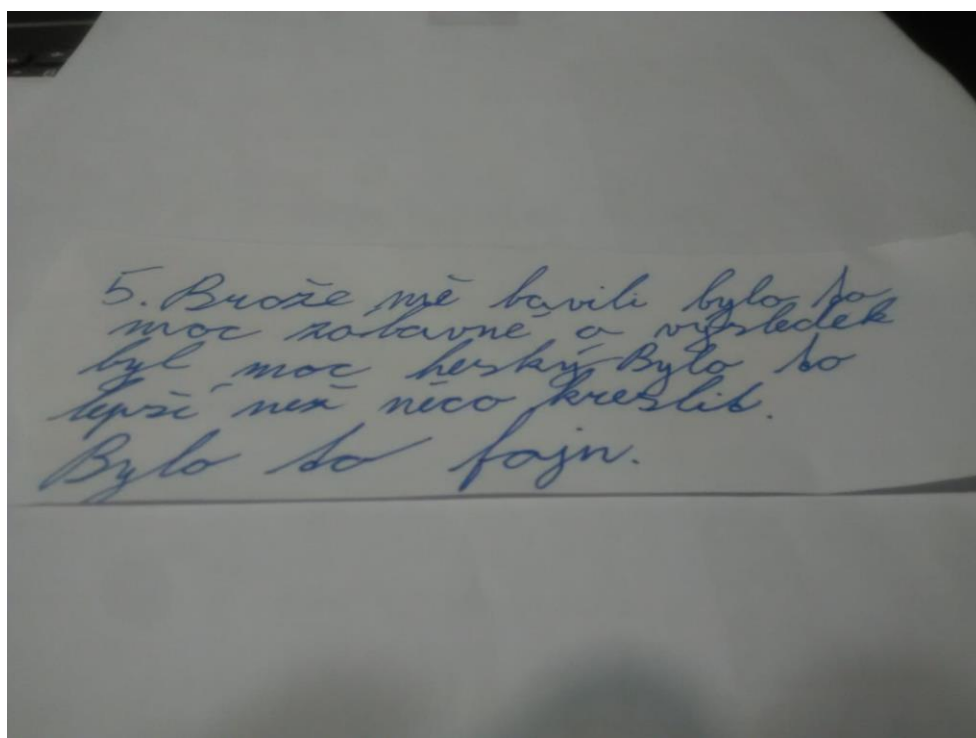 5. Brože mě bavili bylo to
moc zábavné a výsledek
byl moc heský. Bylo to
lepší než něco kreslit.
Bylo to fajn.